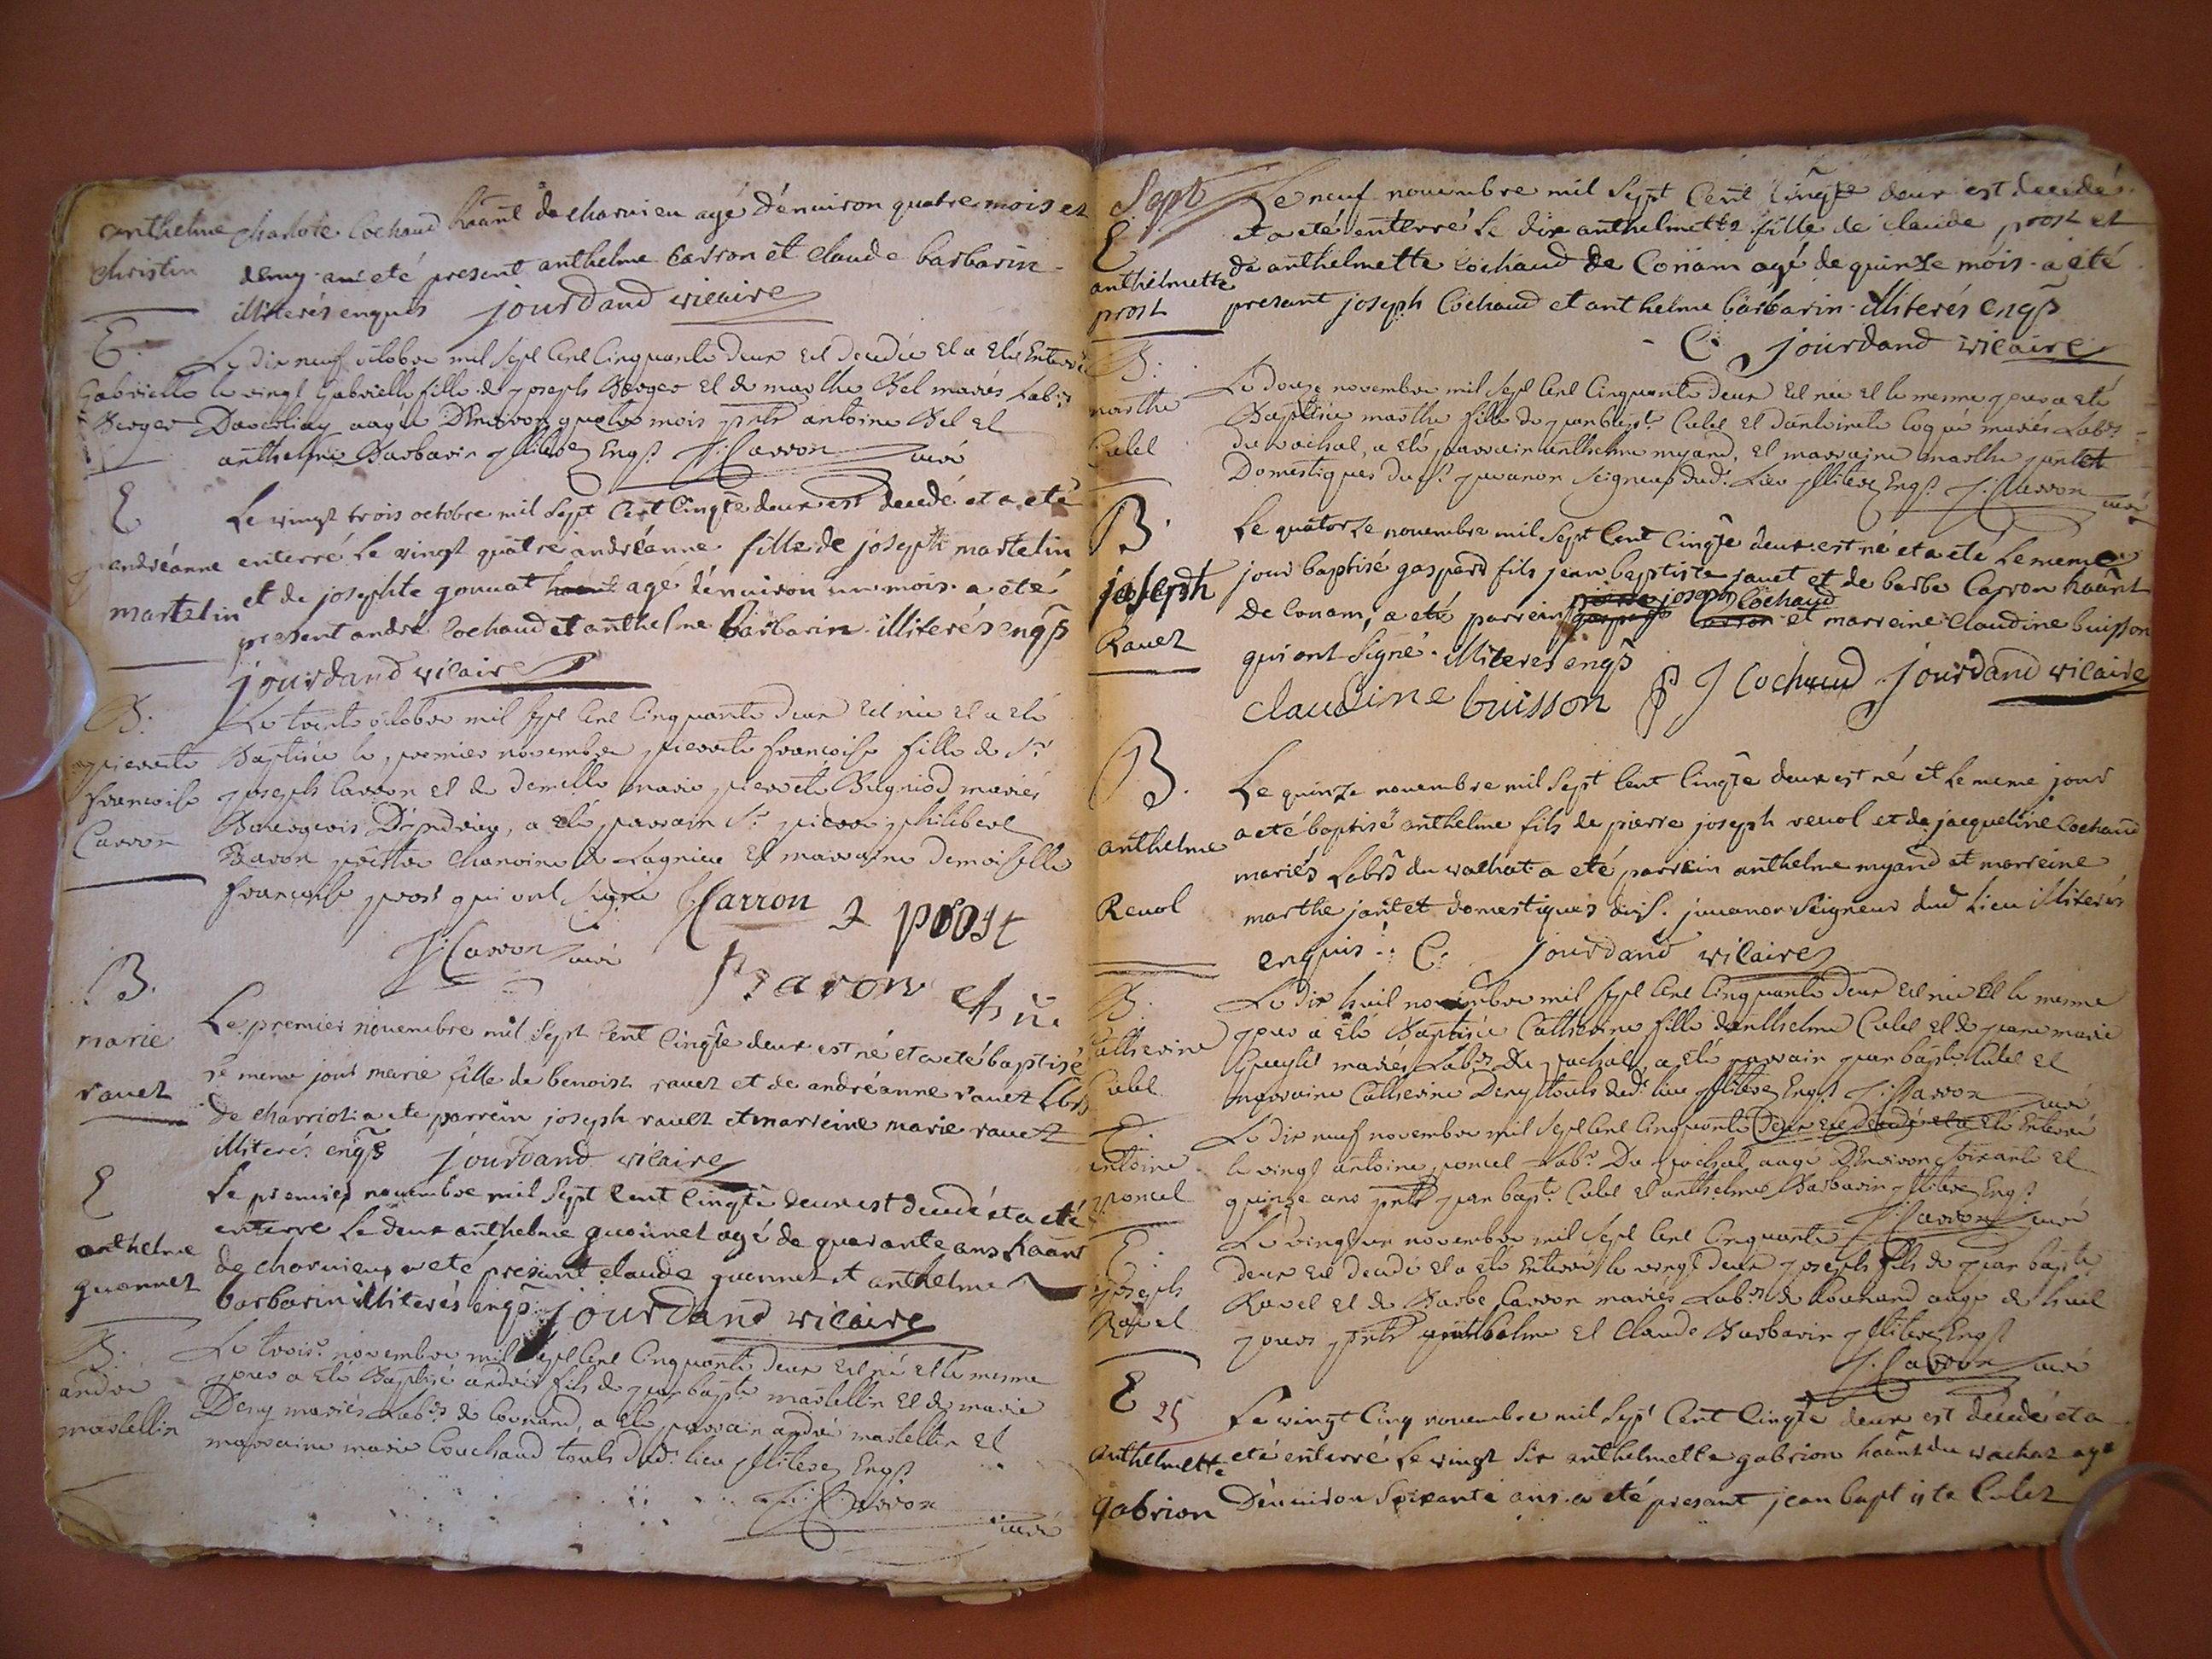 anthelme charlote Cochaud haânt de charvieu agé d'énviron quatre mois et
christin demy a eté present anthelme carron et claude barbarin
illiterés enquis jourdand vicaire
E. Le dix neuf octobre mil sept cent cinquante deux est decedée et a eté enterrée
Gabrielle le vingt Gabrielle fille de joseph Berger et de marthe Bel mariés Labrs
Berger aagée D'environ quatre mois pnts antoine Bel et
anthelme Barbarin illiterez Enqs J: Carron curé
E Le vingt trois octobre mil sept cent cinqte deux est decedé et a eté
andréanne enterré le vingt quatre andréanne fille de joseph martelin
martelin et de josephte gonnat agé d'énviron un mois a eté
present andré Cochaud et anthelme barbarin illiterés enqs
jourdand vicaire
B. Le trente octobre mil sept cent cinquante deux est née et a eté
pierrette Baptisée le premier novembre pierrette francoise fille de Sr
francoise joseph Carron et de demelle marie pierrette mariés
Carron Bourgeois D'jndrieu, a eté parrain Sr pierre philibert
Baron prêtre chanoine de Lagnieu et marraine demoiselle
francoise prost qui ont signé Carron prost
J: Carron curé Baron ch ne
B.
marie Le premier novembre mil sept cent cinqte deux est né et a eté baptisé
le meme jour marie fille de benoist ravet et de andréanne ravet Lbrs
ravet de charriot a ete parrein joseph ravet et marreine marie ravet
illiterés enqs jourdand vicaire
E Le premier novembre mil sept cent cinqte deux est decedé et a eté
anthelme enterre le deux anthelme guonnet agé de quarante ans haânt
guonnet de charvieux a eté present claude guonnet et anthelme
barbarin illiterés enqs jourdand vicaire
B. Le troise novembre mil sept cent cinquante deux est né et le mesme
andré jour a eté Baptisé andré fils de jean bapte martellin et de marie
martellin Deny mariés Labrs de Counand, a eté parrain andré martellin et
marraine marie Couchaud touts dudt lieu illiterez Enqs
J: Carron curé
Sept Le neuf novembre mil sept cent cinqte deux est decedé
E et a eté enterré le dix anthelmette fille de claude prost et
anthelmette de anthelmette cochaud de Conam agé de quinze mois a été
prost presant joseph Cochaud et anthelme barbarin illiterés enqs
C. jourdand vicaire
B. Le douze novembre mil sept cent cinquante deux est née et le mesme jour a eté
marthe Baptisée marthe fille de jean bapte Culet et d'antoinette mariés Labrs
Culet du vachat, a eté parrain anthelme myand, et marraine marthe jantet
Domestiques du Sr juvanon seigneur dudt Lieu illiterez Enqs J: Carron curé
B. Le quatorze novembre mil sept cent cinqte deux est né et a ete le meme
joseph jour baptisé gaspard fils jean baptiste ravet et de barbe Carron haânt
Ravet de Conam, a eté parrein joseph Cochaud et marreine Claudine buisson
qui ont signé illiteres enqs
claudine buisson J Cochaud jourdand vicaire
B. Le quinze novembre mil sept cent cinqte deux est né et le meme jour
anthelme a eté baptisé anthelme fils de pierre joseph revol et de jacqueline Cochaud
mariés Labrs du vachat a eté parrein anthelme myand et marreine
Revol marthe jantet domestiques du S. juvanon Seigneur dud Lieu illiterés
enquis C. jourdand vicaire
B. Le dix huit novembre mil sept cent cinquante deux est née et le mesme
Catherine jour a eté Baptisée Catherine fille d'anthelme Culet et de jeane marie
Culet mariés Labrs du vachat, a eté parrain jean bapte Culet et
marraine Catherine Deny touts dudt lieu illiterez Enqs J: Carron curé
E. Le dix neuf novembre mil sept cent cinquante deux est decedé et a eté Enterré
antoine le vingt antoine poncet Labr Du vachat aagé D'environ soixante et
poncet quinze ans pnts jean bapte Culet et anthelme Barbarin illiterez Enqs
J: Carron curé
E. Le vingt un novembre mil sept cent cinquante
joseph deux est decedé et a eté enterré le vingt deux joseph fils de jean bapte
Ravet Ravet et de Barbe Carron mariés Labrs de Counand aagé de huit
jours pnts anthelme et Claude Barbarin illiterez Enqs
J: Carron curé
E 25 Le vingt cinq novembre mil sept cent cinqte deux est décedé et a
anthelmette eté enterré le vingt six anthelmette gabrion haânt du vachat agé
gabrion D'énviron soixante ans a eté presant jean baptiste Culet